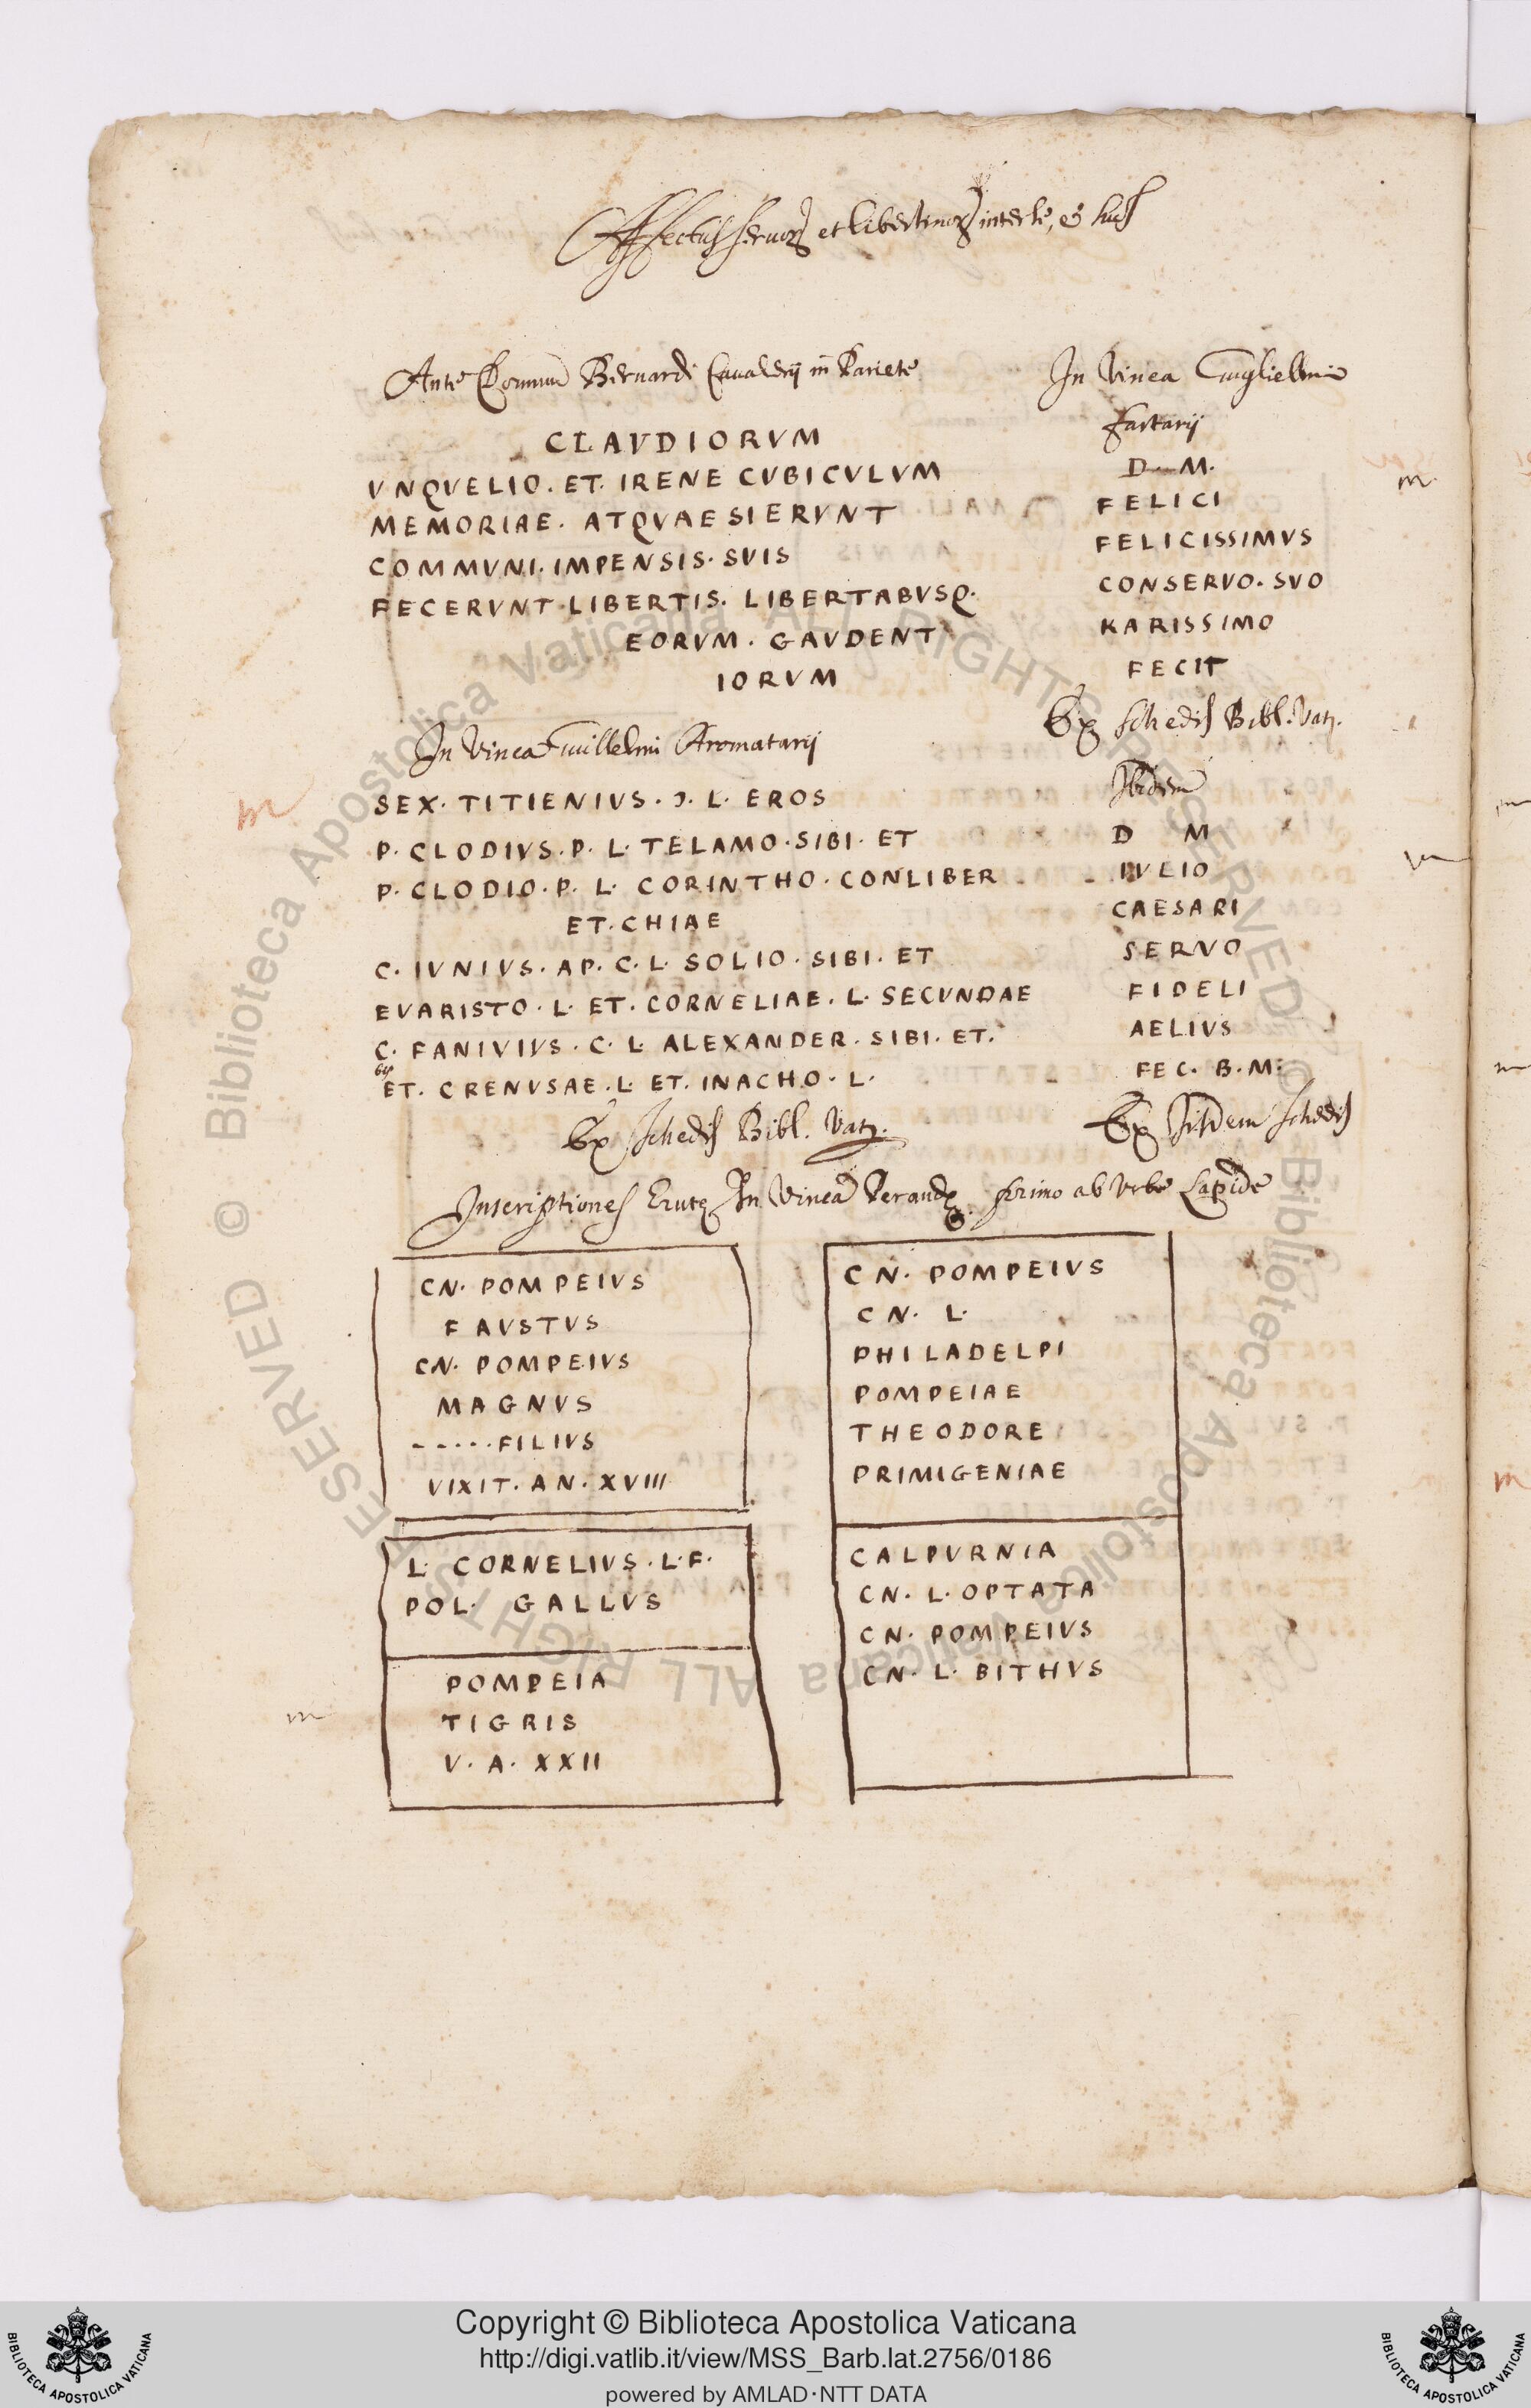 Affectus servorum et libertinorum inter se, et suis
Ante Domum Bernardi Cavalerij in Pariete
CLAVDIORVM
VNQVELIO. ET. IRENE CVBICVLVM
MEMORIAE. ATQVAESIERVNT
COMMVNI. IMPENSIS. SVIS
FECERVNT. LIBERTIS. LIBERTABVSQ.
EORVM. GAVDENT
IORVM
In Vinea Guillelmi Aromatarij
SEX. TITIENIVS. Ɔ. L. EROS
P. CLODIVS. P. L. TELAMO. SIBI. ET
P. CLODIO. P. L. CORINTHO. CONLIBER
ET. CHIAE
C. IVNIVS. AP. C. L. SOLIO. SIBI. ET
EVARISTO. L. ET. CORNELIAE. L. SECVNDAE
C. FANIVIVS. C. L. ALEXANDER. SIBI. ET.
ET. CRENVSAE. L. ET. INACHO. L.
Ex schedis Bibl. Vatz.
In Vinea Guglielmi
Tartarij
D M.
FELICI
FELICISSIMVS
CONSERVO. SVO
KARISSIMO
FECIT
Ex schedis Bibl. Vatz.
Ibidem
D M
IVLIO
CAESARI
SERVO
FIDELI
AELIVS
FEC. B. M.
Ex iisdem schedis
Inscriptiones Erutę In Vinea Verandę Primo ab Urbe Lapide
CN. POMPEIVS
FAVSTVS
CN. POMPEIVS
MAGNVS
-.....FILIVS
VIXIT. AN. XVIII
L. CORNELIVS. L. F.
POL. GALLVS
POMPEIA
TIGRIS
V. A. XXII
CN. POMPEIVS
CN. L.
PHILADELPI
POMPEIAE
THEODORE
PRIMIGENIAE
CALPVRNIA
CN. L. OPTATA
CN. POMPEIVS
CN. L. BITHVS
m
m
m
© Biblioteca Apostolica Vaticana ALL RIGHTS RESERVED © Biblioteca Apostolica Vaticana ALL RIGHTS RESERVED
BIBLIOTECA APOSTOLICA VATICANA
Copyright © Biblioteca Apostolica Vaticana
http://digi.vatlib.it/view/MSS_Barb.lat.2756/0186
powered by AMLAD·NTT DATA
BIBLIOTECA APOSTOLICA VATICANA